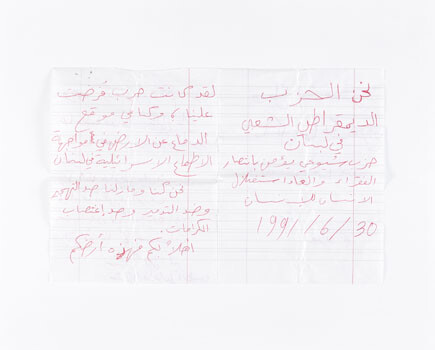 نحن الحزب
الديمقراطي الشعبي
في لبنان
حزب شيوعي مؤمن بانتصار
الفقراء والغاء استغلال
الانسان للانسان
1991/6/30
لقد كانت حرب فرضت
علينا، وكنا في موقع
الدفاع عن الارض في مواجهة
الاطماع الاسرائيلية في لبنان
نحن كنا وما زلنا ضد التهجير
وضد التدمير وضد اغتصاب
الكرامات.
اهلا بكم فهذه أرضكم